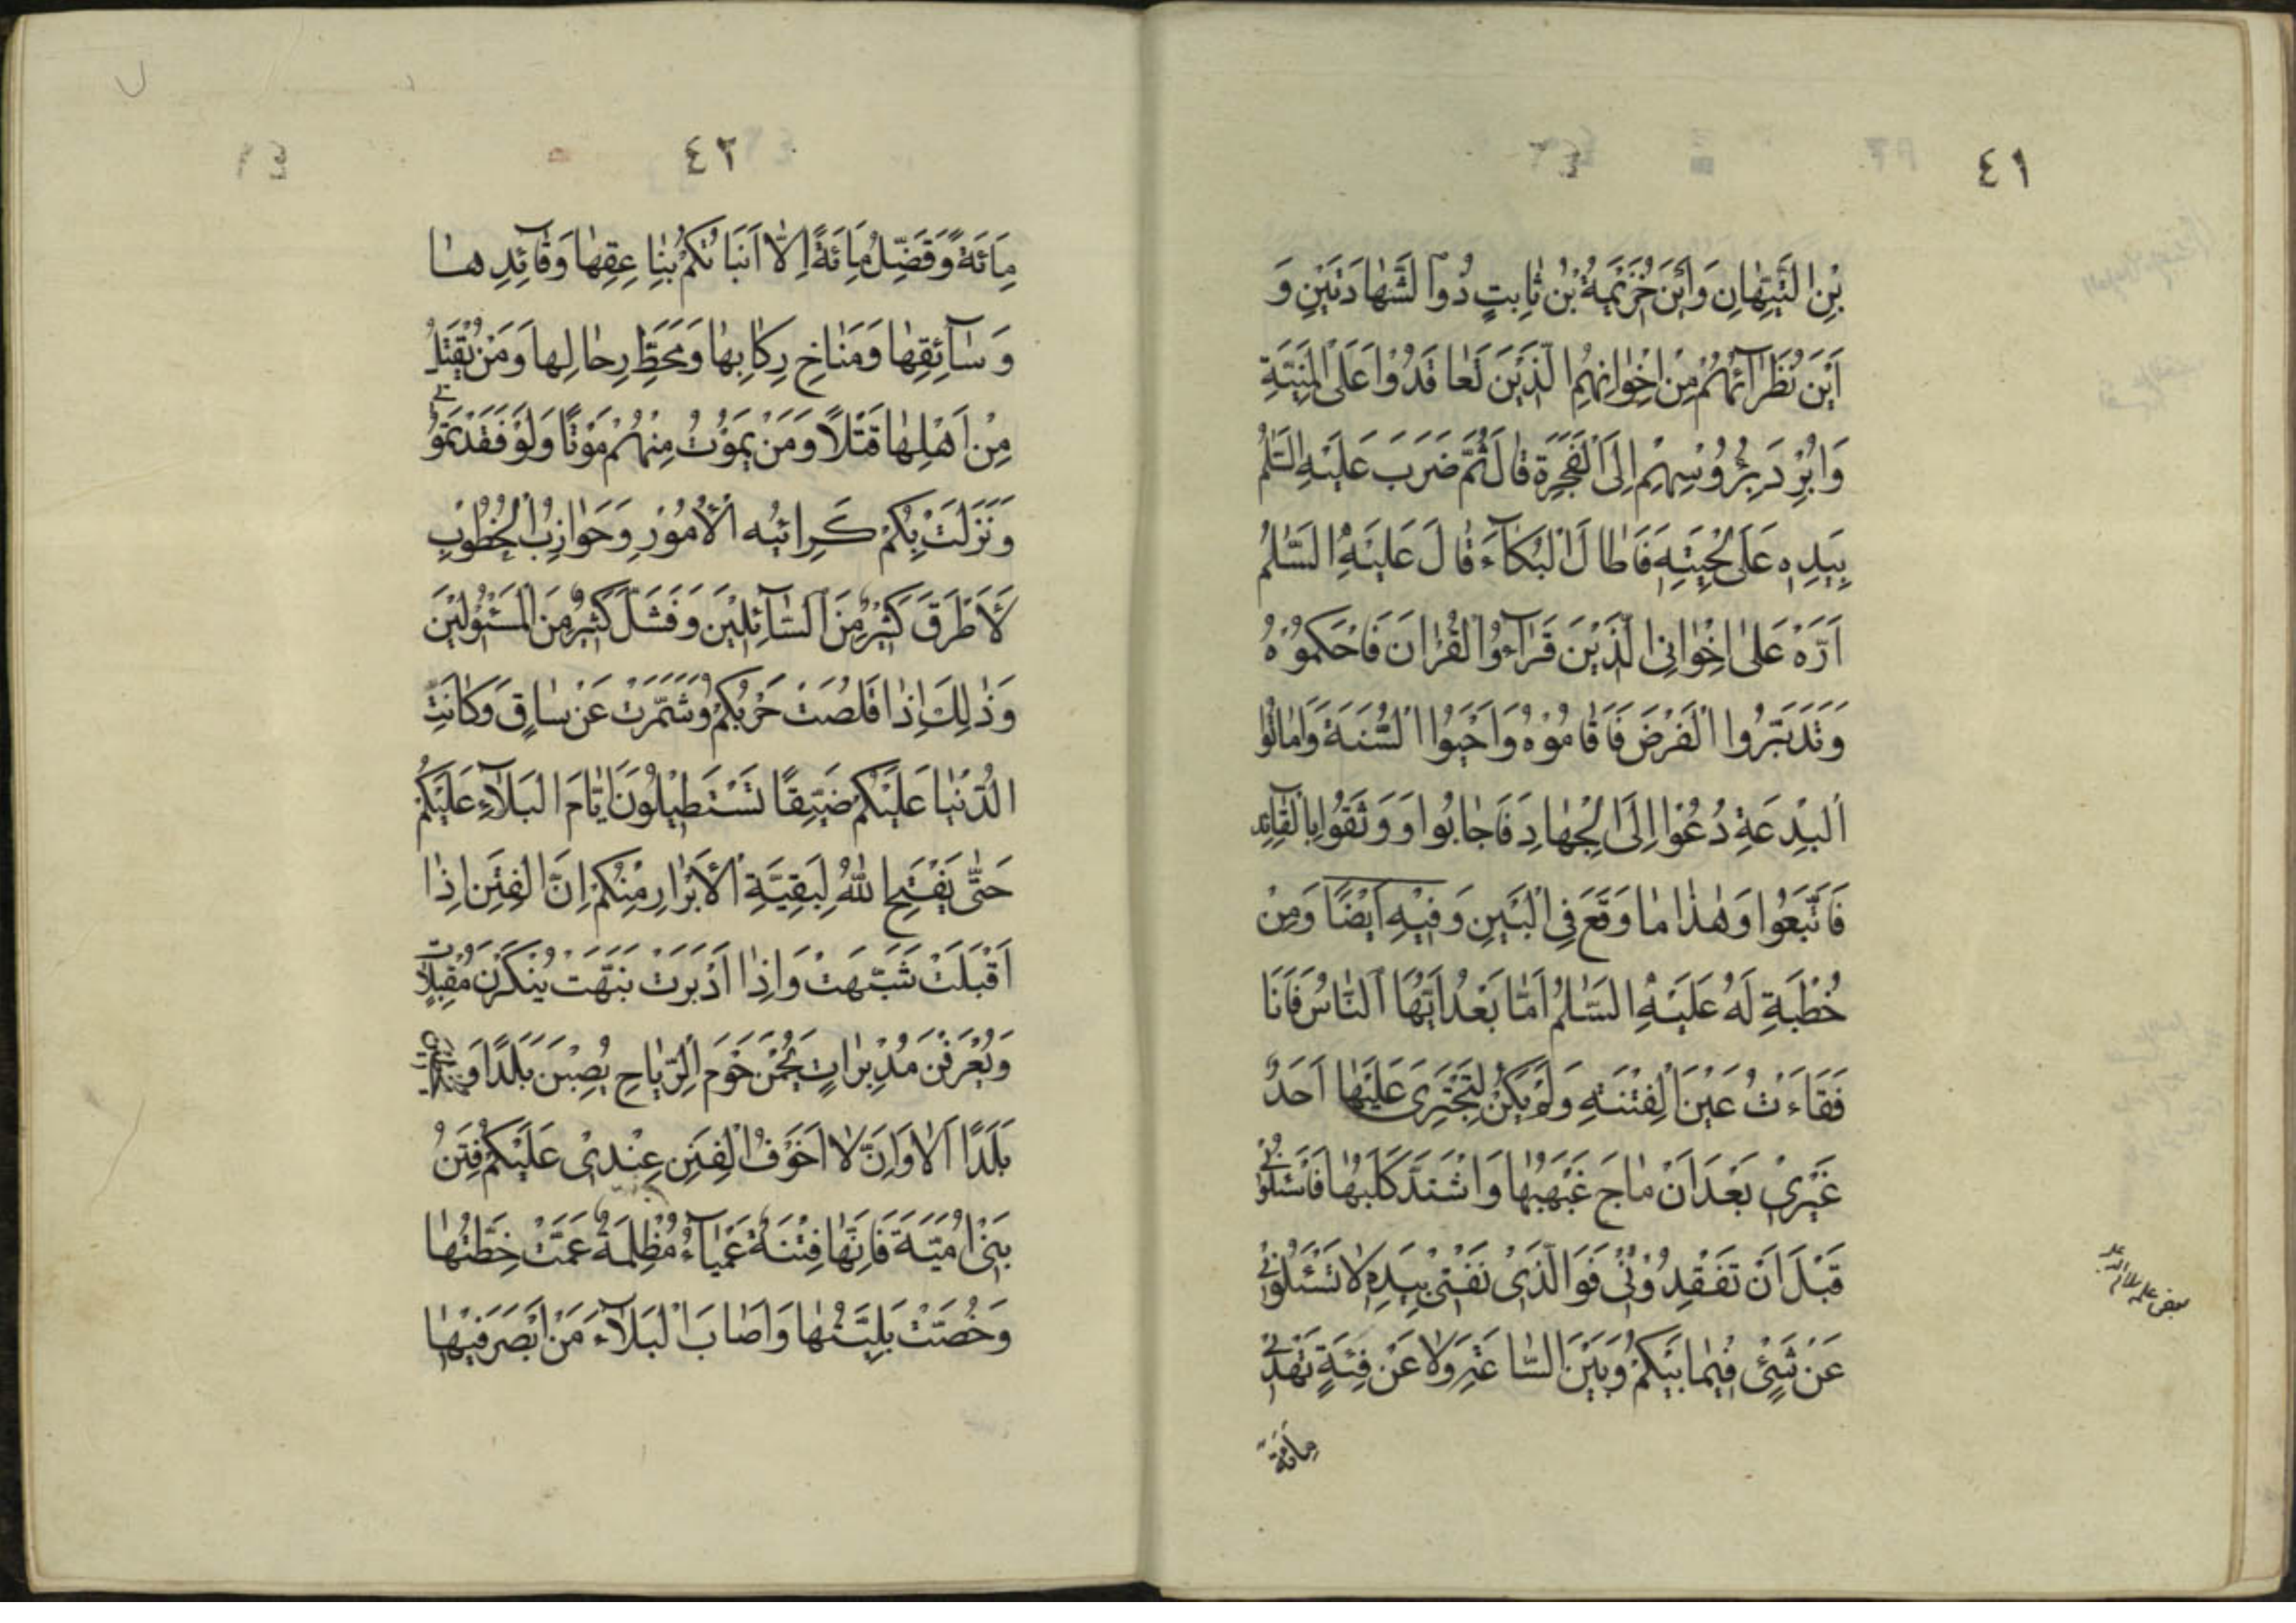 ٤١
بْنِ التَّيِّهَانِ وَاَيْنَ خُزَيْمَةُ بْنُ ثَابِتٍ ذُو الشَّهَادَتَيْنِ وَ
اَيْنَ نُظَرَآئُهُمْ مِنْ اِخْوَانِهِمُ الَّذِيْنَ تَعَاقَدُوْا عَلَى الْمَنِيَّةِ
وَاُبْرِدَ بِرُؤُسِهِمْ اِلَى الْفَجَرَةِ قَالَ ثُمَّ ضَرَبَ عَلَيْهِ السَّلٰمُ
بِيَدِهِ عَلَى لِحْيَتِهِ فَاَطَالَ الْبُكَآءَ قَالَ عَلَيْهِ السَّلٰمُ
اَرَّهْ عَلَى اِخْوَانِى الَّذِيْنَ قَرَآءُوا الْقُرْاٰنَ فَاَحْكَمُوْهُ
وَتَدَبَّرُوا الْفَرْضَ فَاَقَامُوْهُ وَاَحْيَوُا السُّنَّةَ وَاَمَاتُوا
الْبِدْعَةِ دُعُوْا اِلَى الْجِهَادِ فَاَجَابُوا وَ وَثَقُوْا بِالْقَآئِدِ
فَاتَّبَعُوا وَهٰذَا مَا وَقَعَ فِى الْبَيْنِ وَفِيْهِ اَيْضًا وَمِنْ
خُطْبَةٍ لَهُ عَلَيْهِ السَّلٰمُ اَمَّا بَعْدُ اَيُّهَا النَّاسُ فَاَنَا
فَقَاءْتُ عَيْنَ الْفِتْنَةِ وَلَمْ يَكُنْ لِتَجْتَرِىَ عَلَيْهَا اَحَدٌ
غَيْرِيْ بَعْدَ اَنْ مَاجَ غَيْهَبُهَا وَاشْتَدَّ كَلَبُهَا فَاسْئَلُوْنِىْ
قَبْلَ اَنْ تَفْقِدُوْنِىْ فَوَالَّذِىْ نَفْسِىْ بِيَدِهِ لَا تَسْئَلُوْنِىْ
عَنْ شَىْئٍ فِيْمَا بَيْنَكُمْ وَبَيْنَ السَّاعَةِ وَلَا عَنْ فِئَةٍ تَهْدِىْ
مِائَةً
٤٢
مِائَةً وَتُضِلُّ مِائَةً اِلَّا اَنْبَاْتُكُمْ بِنَاعِقِهَا وَقَآئِدِهَا
وَسَآئِقِهَا وَمَنَاخِ رِكَابِهَا وَمَحَطِّ رِحَالِهَا وَمَنْ يُقْتَلُ
مِنْ اَهْلِهَا قَتْلًا وَمَنْ يَمُوْتُ مِنْهُمْ مَوْتًا وَلَوْ فَقَدْتُمُوْنِىْ
وَنَزَلَتْ بِكُمْ كَرَائِهُ الْاُمُوْرِ وَحَوَازِبُ الْخُطُوْبِ
لَاَطْرَقَ كَثِيْرٌ مِنَ السَّآئِلِيْنَ وَفَشَلَ كَثِيْرٌ مِنَ الْمَسْئُوْلِيْنَ
وَذٰلِكَ اِذَا قَلَصَتْ حَرْبُكُمْ وَشَمَّرَتْ عَنْ سَاقٍ وَكَانَتِ
الدُّنْيَا عَلَيْكُمْ ضَيِّقًا تَسْتَطِيْلُوْنَ اَيَّامَ الْبَلَآءِ عَلَيْكُمْ
حَتّٰى يَفْتَحَ اللّٰهُ لِبَقِيَّةِ الْاَبْرَارِ مِنْكُمْ اِنَّ الْفِتَنَ اِذَا
اَقْبَلَتْ شَبَّهَتْ وَاِذَا اَدْبَرَتْ نَبَّهَتْ يُنْكَرْنَ مُقْبِلَاتٍ
وَيُعْرَفْنَ مُدْبِرَاتٍ يَحُمْنَ حَوْمَ الرِّيَاحِ يُصِبْنَ بَلَدًا وَ
بَلَدًا اَلَا وَاِنَّ لَا اَخْوَفُ الْفِتَنِ عِنْدِىْ عَلَيْكُمْ فِتَنُ
بَنِىْ اُمَيَّةَ فَاِنَّهَا فِتْنَةٌ عَمْيَآءُ مُظْلِمَةٌ عَمَّتْ خِطَّتُهَا
وَخُصَّتْ بَلِيَّتُهَا وَاَصَابَ الْبَلَآءَ مَنْ اَبْصَرَ فِيْهَا